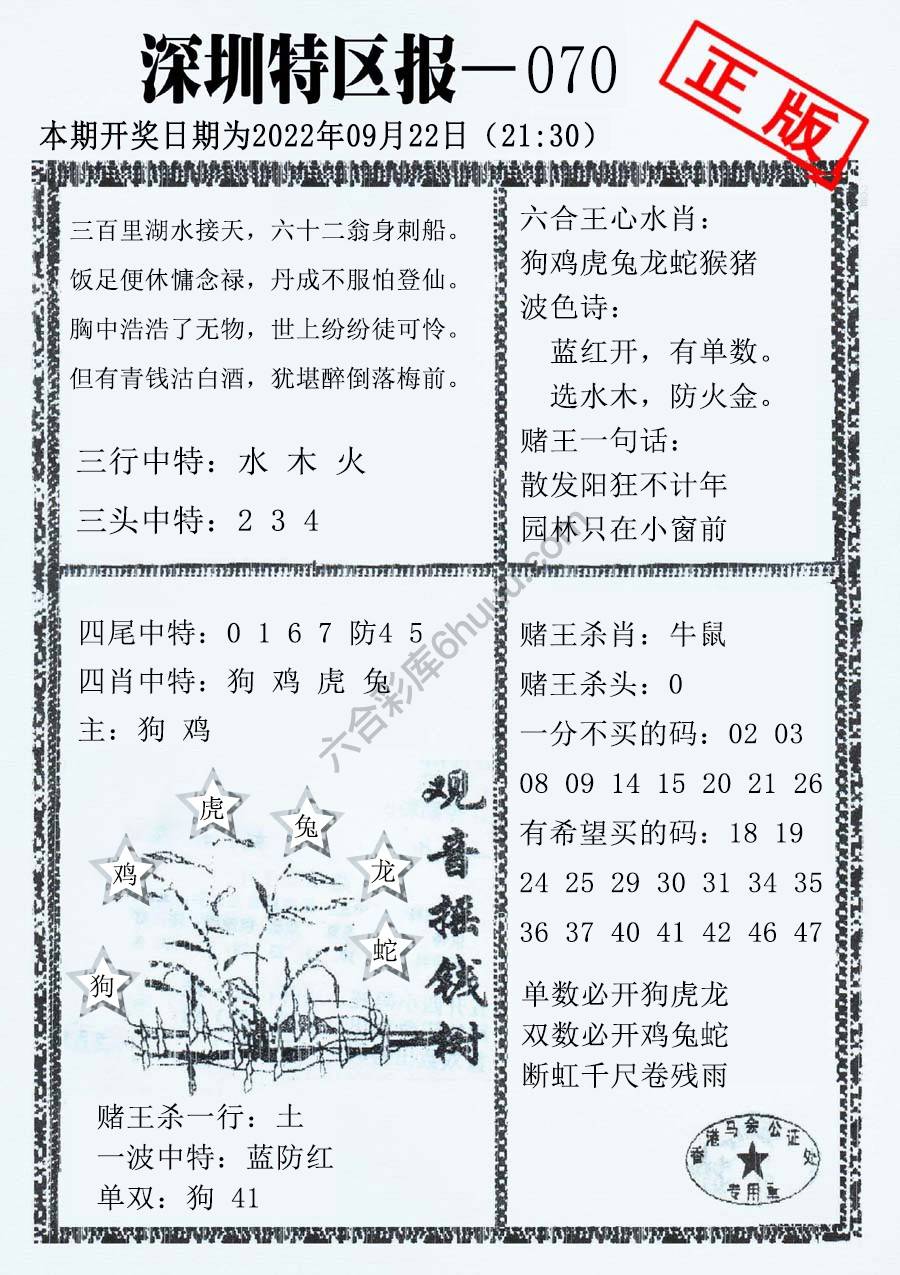 深圳特区报—070
正版
本期开奖日期为2022年09月22日（21:30）
三百里湖水接天，六十二翁身刺船。
饭足便休慵念禄，丹成不服怕登仙。
胸中浩浩了无物，世上纷纷徒可怜。
但有青钱沽白酒，犹堪醉倒落梅前。
三行中特：水 木 火
三头中特：2 3 4
六合王心水肖：
狗鸡虎兔龙蛇猴猪
波色诗：
蓝红开，有单数。
选水木，防火金。
赌王一句话：
散发阳狂不计年
园林只在小窗前
四尾中特：0 1 6 7 防4 5
四肖中特：狗 鸡 虎 兔
主：狗 鸡
虎
兔
鸡
龙
蛇
狗
观音摇钱树
赌王杀一行：土
一波中特：蓝防红
单双：狗 41
赌王杀肖：牛鼠
赌王杀头：0
一分不买的码：02 03
08 09 14 15 20 21 26
有希望买的码：18 19
24 25 29 30 31 34 35
36 37 40 41 42 46 47
单数必开狗虎龙
双数必开鸡兔蛇
断虹千尺卷残雨
香港马会公证处
专用章
六合彩库6huuu.com